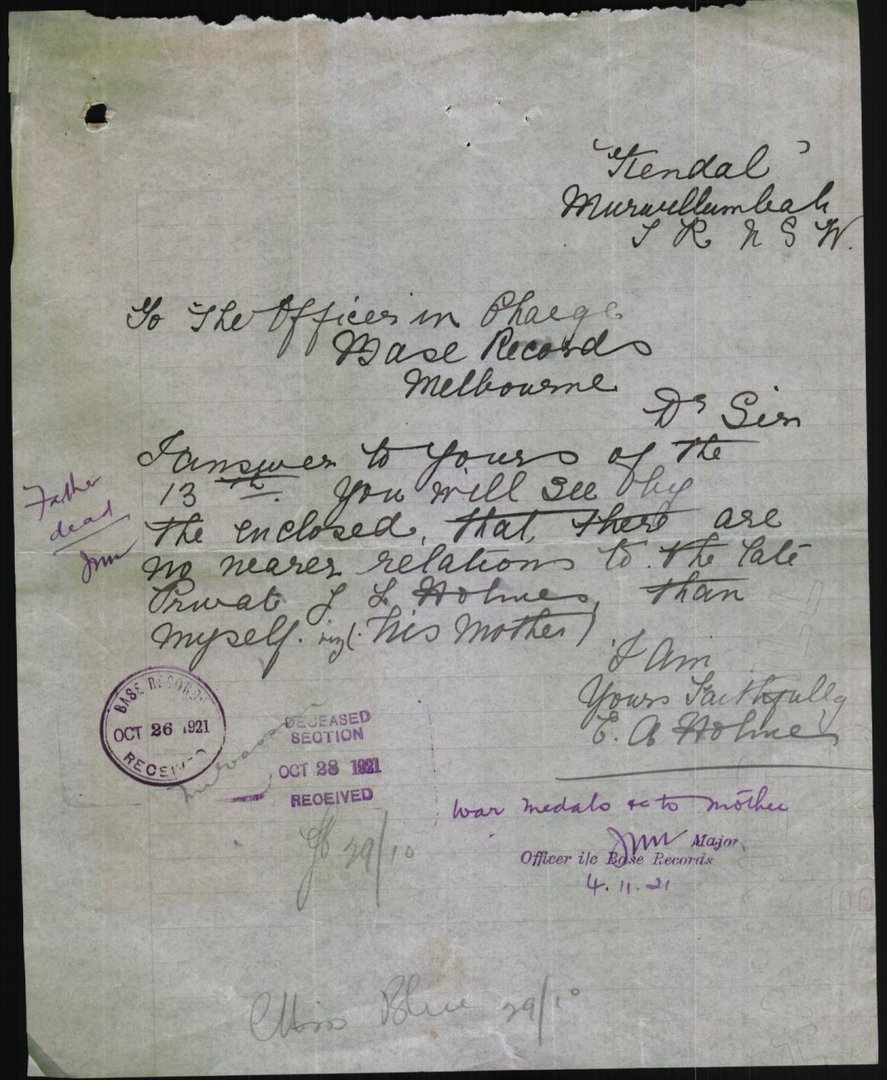 "Kendal"
Murwillumbah
T R N S W.
To The Officer in Charge
Base Records
Melbourne
Dr Sir
I answer to yours of the
13th. You will see by
the enclosed, that, there are
no nearer relations to the late
Privat J L Holmes, than
myself. viz (his Mother)
I Am
Yours Faithfully
E. A Holmes
Father
dead
JMM
BASE RECORDS
OCT 26 1921
RECEIVED
DECEASED
SECTION
OCT 28 1921
RECEIVED
29/10
War medals &c to Mother
JMM Major
Officer i/c Base Records
4.11.21
Miss Blue 29/10